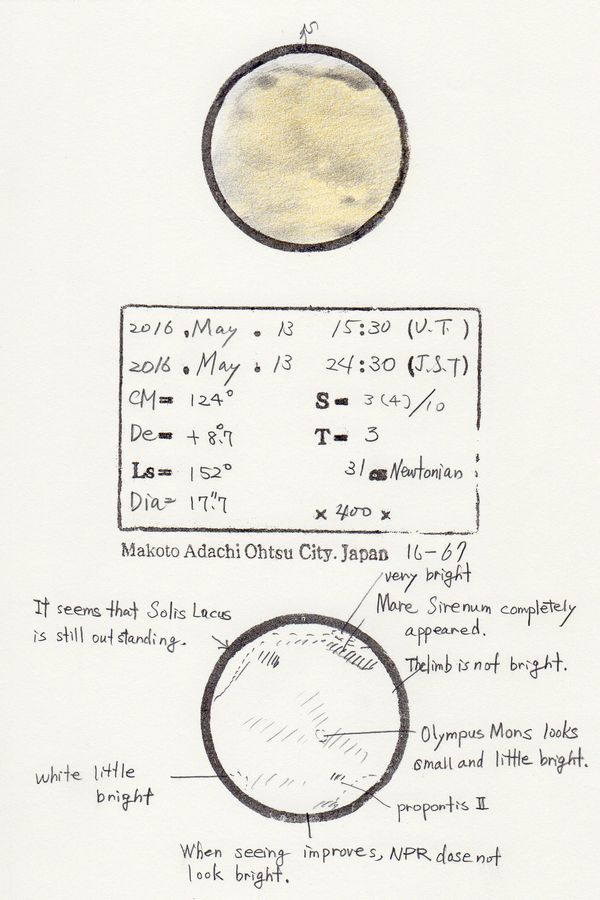 S
2016 . May . 13 15:30 (U.T.)
2016 . May . 13 24:30 (J.S.T)
CM= 124° S= 3(4)/10
De= +8.°7 T= 3
Ls= 152° 31cm Newtonian
Dia= 17."7 × 400 ×
Makoto Adachi Ohtsu City. Japan 16-67
very bright
It seems that Solis Lacus
is still outstanding.
Mare Sirenum completely
appeared.
The limb is not bright.
Olympus Mons looks
small and little bright.
white little
bright
propontis II
When seeing improves, NPR dose not
look bright.